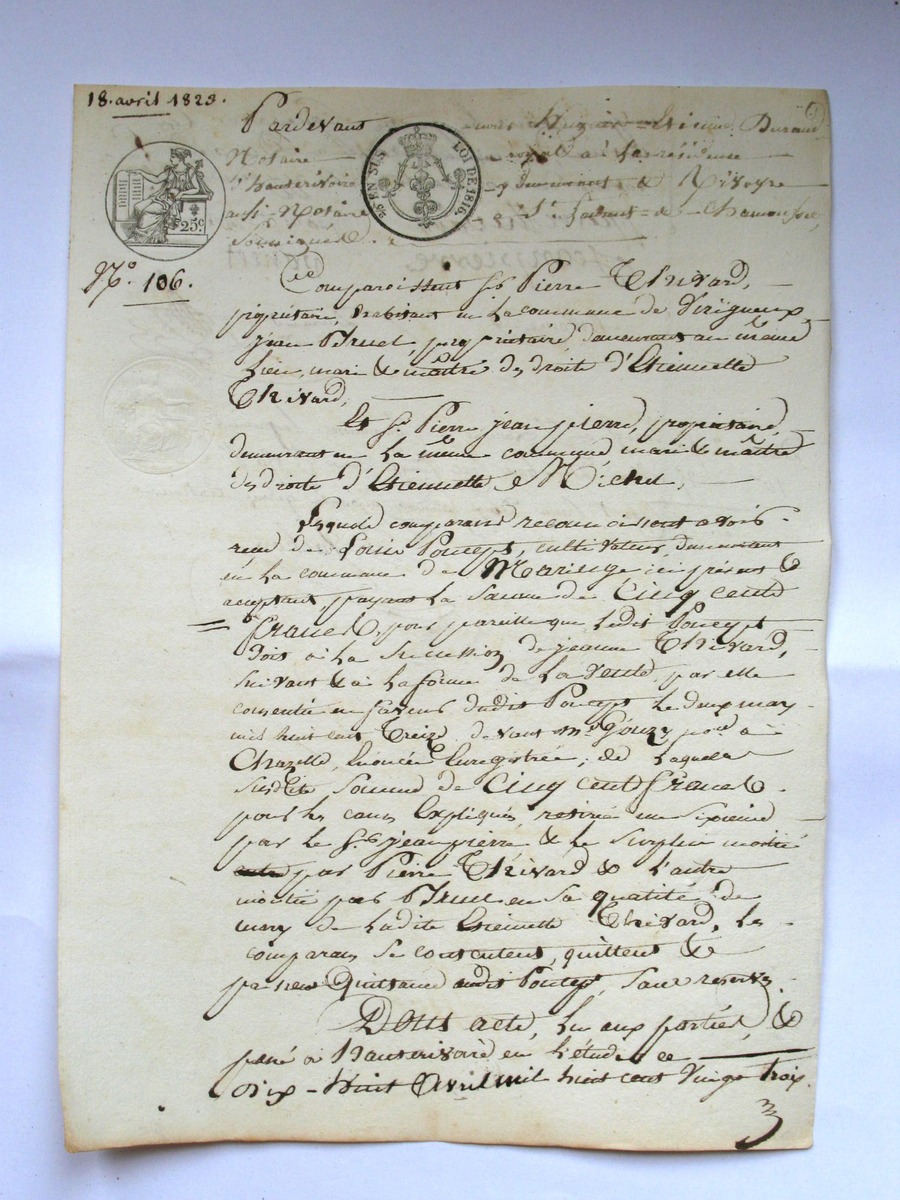 18. avril 1823.
Pardevant Durand
Notaire à la résidence
d'hauterivoire & Rivoyre
aussi Notaire
Soussignés.
25 EN SUS LOI DE 1816.
25c
N.o 106.
Comparoissent sr Pierre Thivard,
propriétaire, habitant en la commune de Virigneux,
jean Bruel, propriétaire demeurant au même
lieu, mari & maître des droits d'Etiennette
Thivard,
Et sr. Pierre jeanpierre, propriétaire,
demeurant en la même commune mari & maître
des droits d'Etiennette Michel,
Lesquels comparans reconnoissent avoir
reçu de Louis Poncept, cultivateur, demeurant
en la commune de Maringe ici présent &
acceptant, payant la somme de Cinq cents
francs, pour pareille que ledit Poncept
doit à la succession de jeanne Thivard,
suivant & à la forme de la vente par elle
consentie en faveur dudit Poncept le deux mars
mil huit cent treize devant me Gonzy, à
Chazelle, énoncée Enregistrée; de laquelle
susdite somme de Cinq cent francs
pour les causes Expliqués, retirée un sixième
par le sr jeanpierre & le surplus moitié
par Pierre Thivard & l'autre
moitié par Bruel en sa qualité de
mary de ladite Etiennette Thivard, les
comparans se contentent, quittent &
passent Quittance audit Poncept, sans reserve.
Dont acte, lu aux parties, &
passé à hauterivoire en l'étude ce
Dix-huit Avril mil huit cent vingt trois.